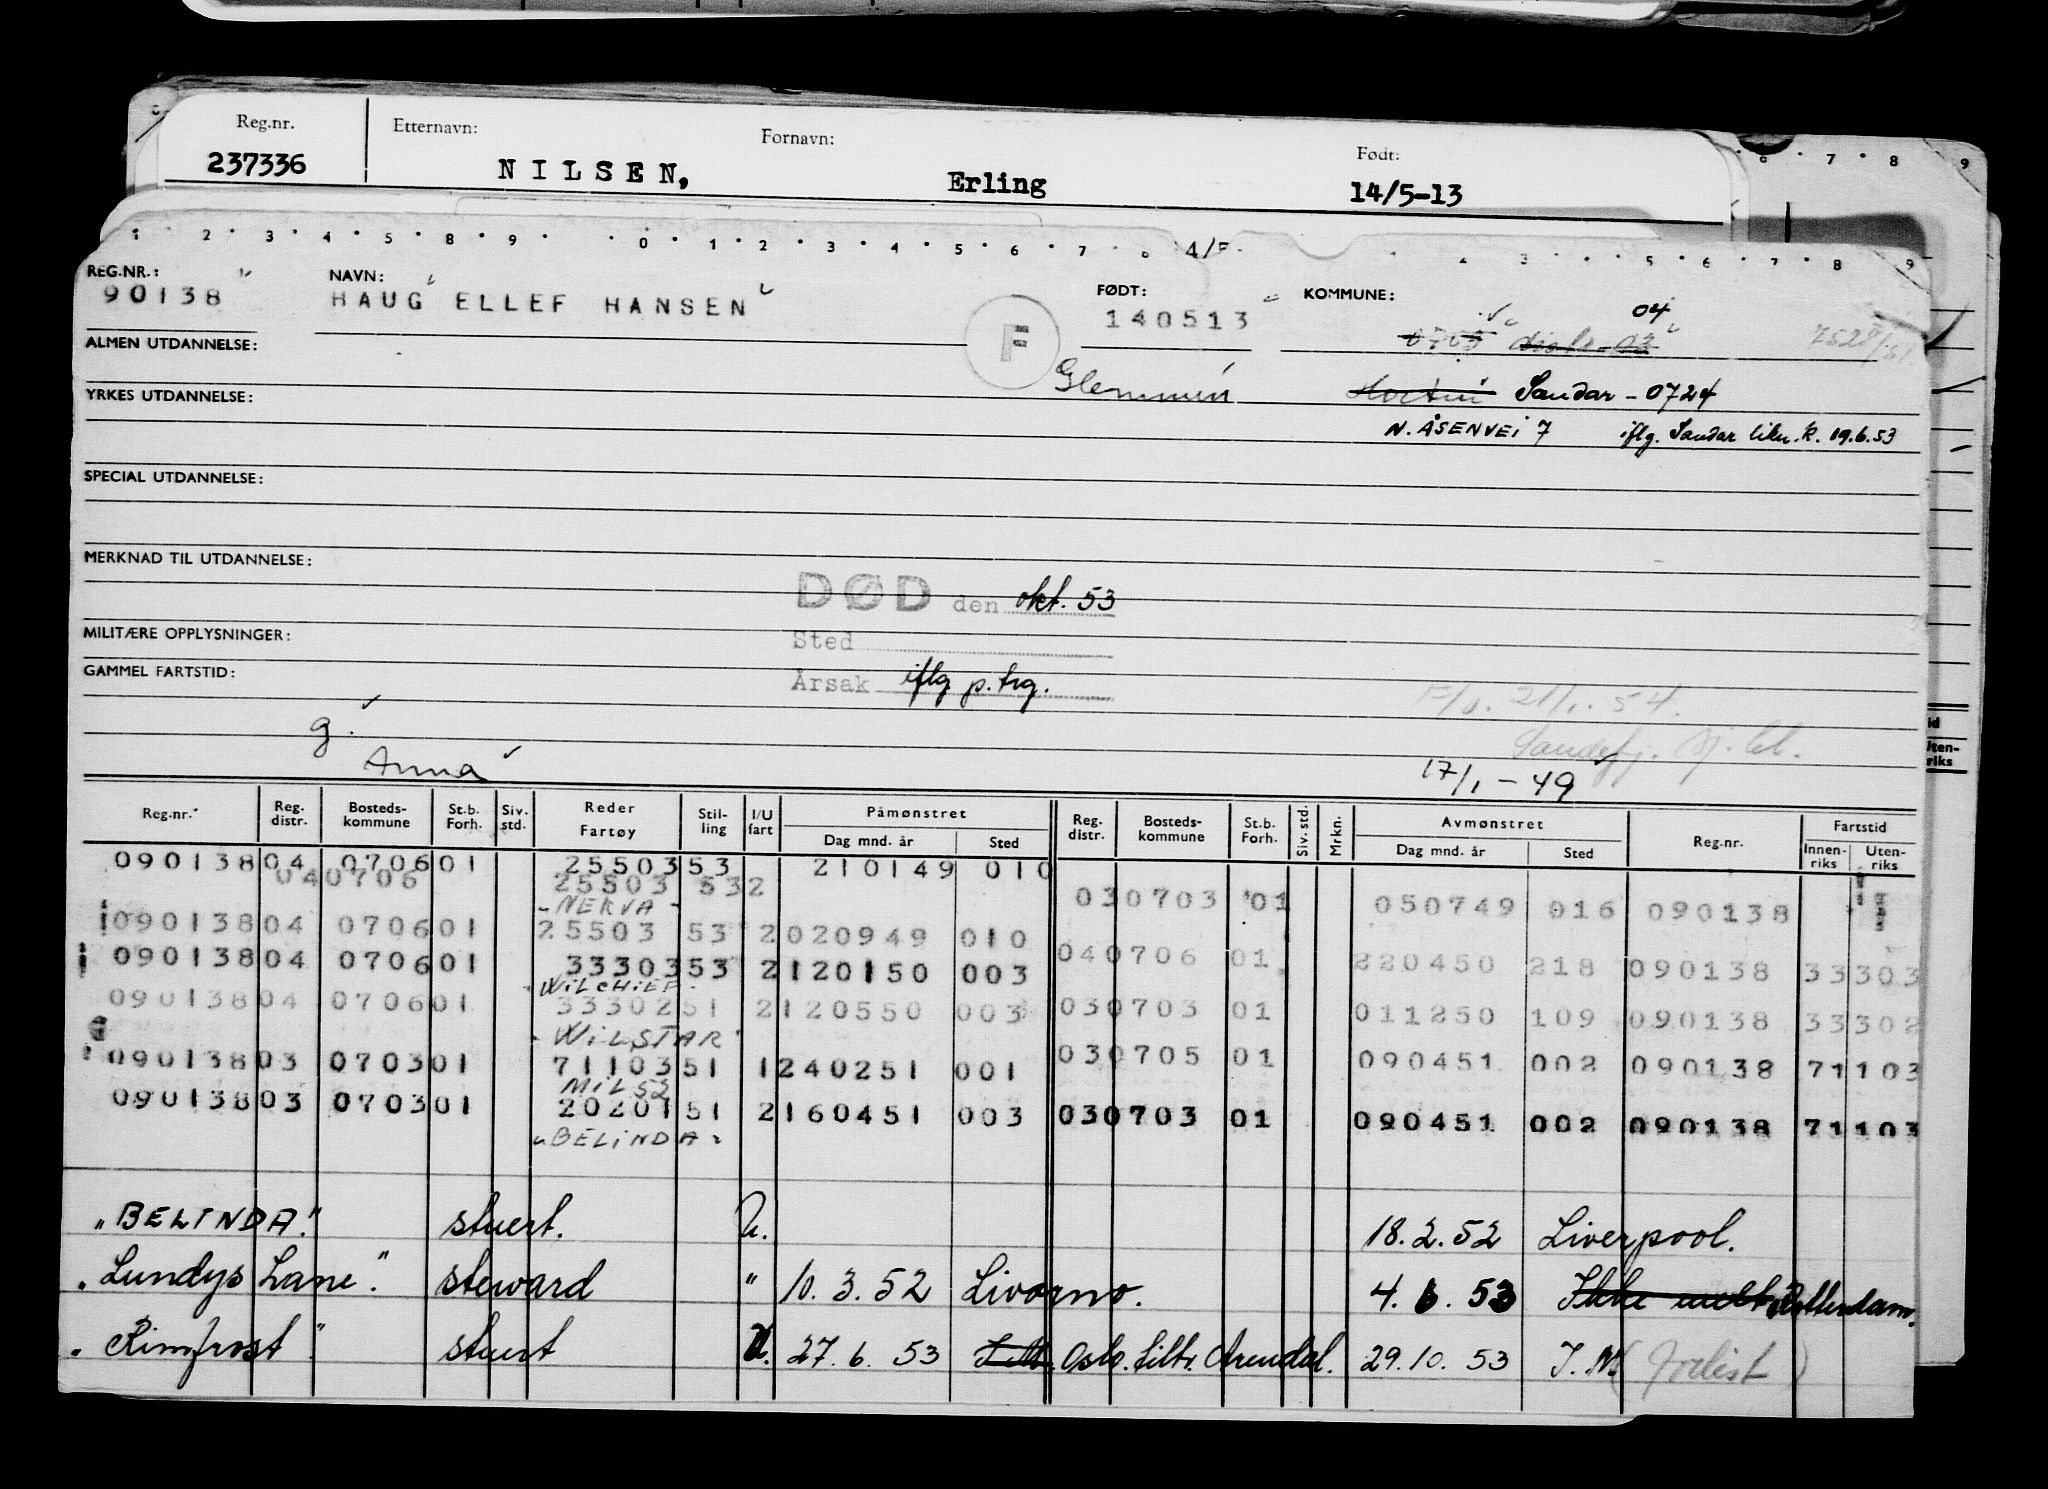 Reg.nr. Etternavn: Fornavn: Født:
237336 NILSEN, Erling 14/5-13
REG.NR.: NAVN: FØDT: KOMMUNE:
90138 HAUG ELLEF HANSEN F 140513 04
ALMEN UTDANNELSE:
Glemmen Sandar - 0724
YRKES UTDANNELSE:
N. ÅSENVEI 7 iflg. Sandar likn.k. 19.6.53
SPECIAL UTDANNELSE:
MERKNAD TIL UTDANNELSE:
DØD den okt. 53
MILITÆRE OPPLYSNINGER: Sted
GAMMEL FARTSTID: Årsak iflg p. trg.
21/1. 54.
g.
Anna 17/1-49
Reg.nr. Reg. distr. Bosteds- kommune St.b. Forh. Siv. std. Reder Fartøy Stil- ling I/U fart Påmønstret Dag mnd. år Sted Reg. distr. Bosteds- kommune St.b. Forh. Siv. std. Mrkn. Avmønstret Dag mnd. år Sted Reg.nr. Fartstid Innen- riks Uten- riks
090138 04 0706 01 25503 53 210149 010
040706 25503 532
- NERVA - 030703 01 050749 016 090138
090138 04 0706 01 25503 53 2 020949 010
090138 04 0706 01 33303 53 2 120150 003 040706 01 220450 218 090138 33303
WILCHIEF.
090138 04 0706 01 33302 51 2 120550 003 030703 01 011250 109 090138 33302
WILSTAR
090138 03 0703 01 71103 51 1 240251 001 030705 01 090451 002 090138 71103
MIL 52
090138 03 0703 01 20201 51 2 160451 003 030703 01 090451 002 090138 71103
"BELINDA"
"BELINDA." stuert. U. 18.2.52 Liverpool.
"Lundys Lane". steward " 10.3.52 Livorno. 4.6.53 Ikke meldt Rotterdam.
"Rimfrost". stuert U. 27.6.53 Oslo. tiltr. Arendal. 29.10.53 I.M. (Forlist)